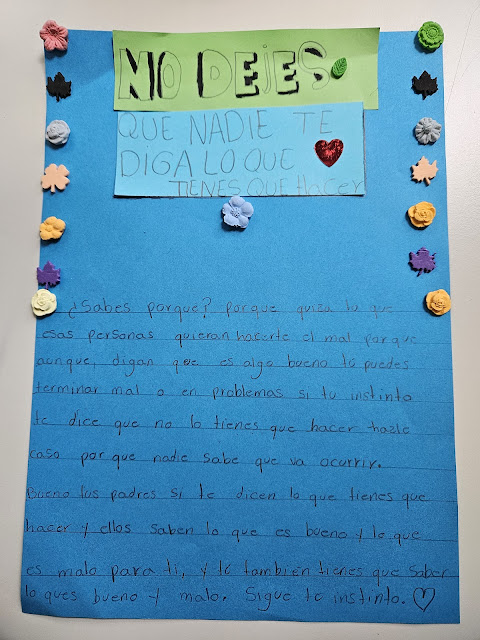 NO DEJES
QUE NADIE TE
DIGA LO QUE
TIENES QUE Hacer
¿Sabes porque? porque quiza lo que
esas personas quieran hacerte el mal porque
aunque, digan que es algo bueno tú puedes
terminar mal o en problemas si tu instinto
te dice que no lo tienes que hacer hazle
caso por que nadie sabe que va ocurrir.
Bueno tus padres si te dicen lo que tienes que
hacer y ellos saben lo que es bueno y lo que
es malo para ti, y tú también tienes que saber
lo ques bueno y malo. Sigue te instinto.